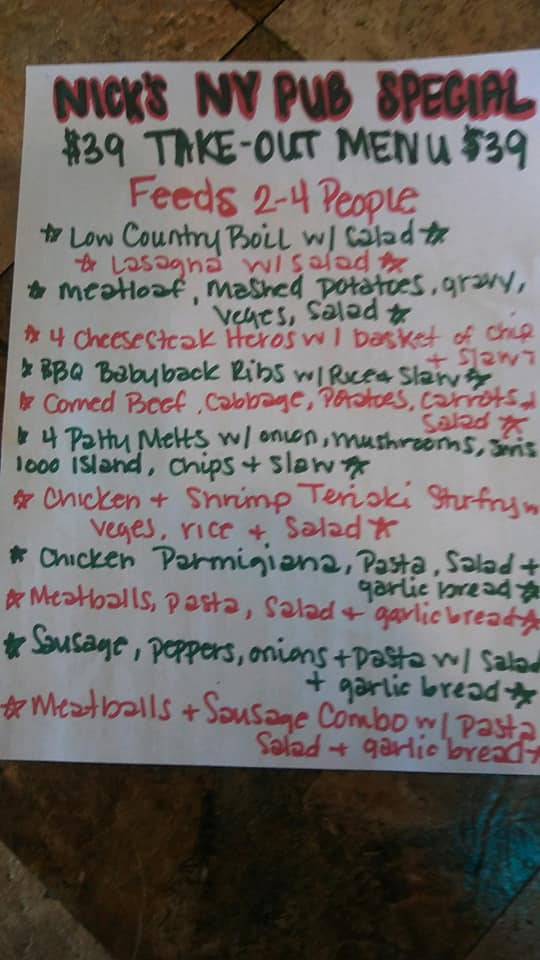 NICK'S NY PUB SPECIAL
$39 TAKE-OUT MENU $39
Feeds 2-4 People
☆ Low Country Boil w/ Salad ☆
☆ Lasagna w/ Salad ☆
☆ Meatloaf, Mashed Potatoes, gravy,
Veges, Salad ☆
☆ 4 Cheesesteak Heros w/ basket of chip
+ Slaw
☆ BBQ Babyback Ribs w/ Rice + Slaw ☆
☆ Corned Beef, Cabbage, Potatoes, Carrots,
Salad ☆
☆ 4 Patty Melts w/ onion, mushrooms,
1000 Island, Chips + Slaw ☆
☆ Chicken + Shrimp Teriaki Stirfry w
Veges, rice + Salad ☆
☆ Chicken Parmigiana, Pasta, Salad +
garlic bread ☆
☆ Meatballs, Pasta, Salad + garlic bread ☆
☆ Sausage, peppers, onions + Pasta w/ Salad
+ garlic bread ☆
☆ Meatballs + Sausage Combo w/ Pasta
Salad + garlic bread ☆